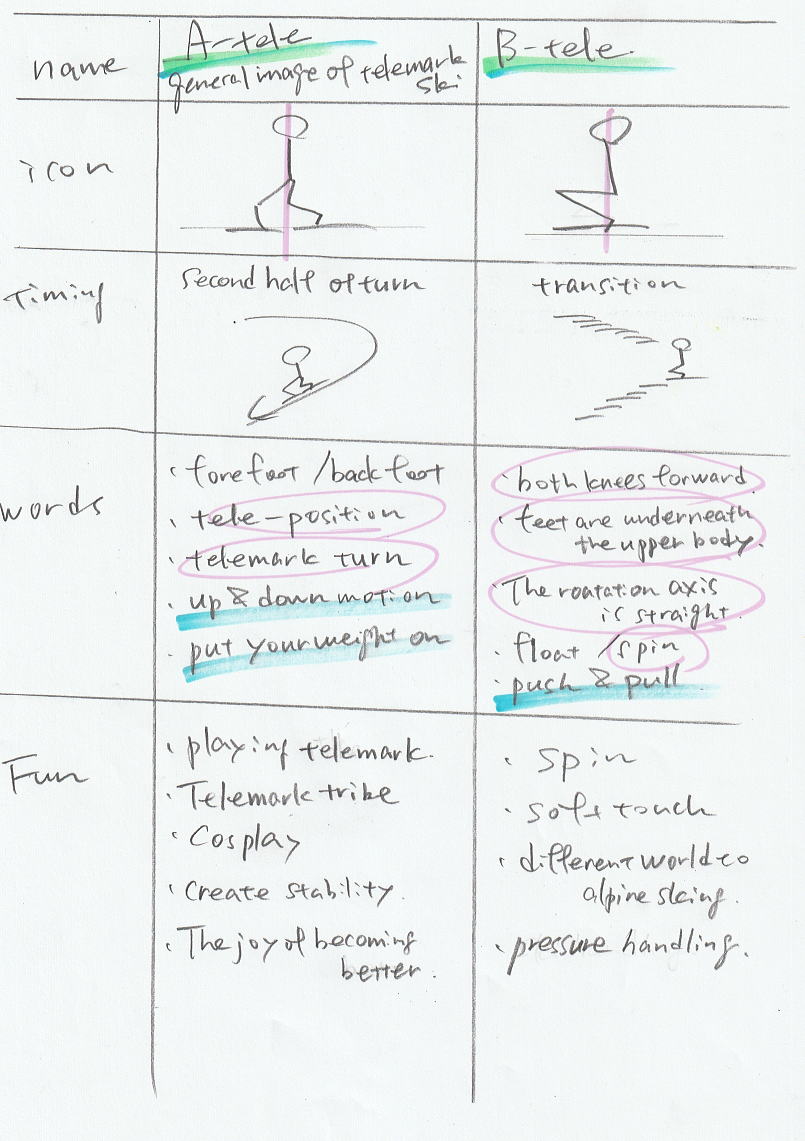 name
A-tele
general image of telemark
ski
B-tele.
icon
Timing
second half of turn
transition
words
・forefoot /back foot
・tele-position
・telemark turn
・up & down motion
・put your weight on
・both knees forward
・feet are underneath
the upper body.
・The roatation axis
is straight.
・float /spin
・push & pull
Fun
・playing telemark.
・Telemark tribe
・Cosplay
・Create stability.
・The joy of becoming
better.
・spin
・soft touch
・different world to
alpine skiing.
・pressure handling.